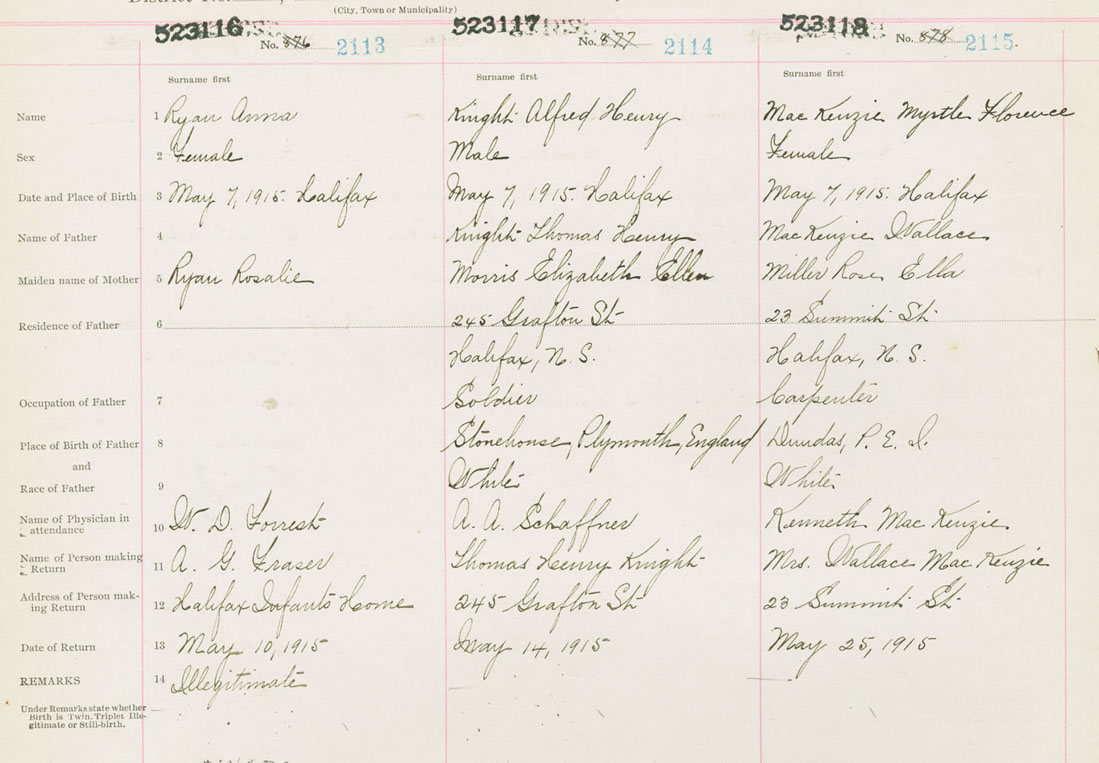 (City, Town or Municipality)
523116 523117 523118
No. 876 2113 No. 877 2114 No. 878 2115.
Surname first Surname first Surname first
Name 1 Ryan Anna Knight Alfred Henry Mac Kenzie Myrtle Florence
Sex 2 Female Male Female
Date and Place of Birth 3 May 7, 1915. Halifax May 7, 1915. Halifax May 7, 1915. Halifax
Name of Father 4 Knight Thomas Henry MacKenzie Wallace
Maiden name of Mother 5 Ryan Rosalie Morris Elizabeth Ellen Miller Rose Ella
Residence of Father 6 245 Grafton St. 23 Summit St.
Halifax, N. S. Halifax, N. S.
Occupation of Father 7 Soldier Carpenter
Place of Birth of Father 8 Stonehouse, Plymouth, England Dundas, P. E. I.
and
Race of Father 9 White White
Name of Physician in attendance 10 W. D. Forrest A. A. Schaffner Kenneth Mac Kenzie
Name of Person making Return 11 A. G. Fraser Thomas Henry Knight Mrs. Wallace MacKenzie
Address of Person mak-
ing Return 12 Halifax Infants Home 245 Grafton St. 23 Summit St.
Date of Return 13 May 10, 1915 May 14, 1915 May 25, 1915
REMARKS 14 Illegitimate
Under Remarks state whether
Birth is Twin, Triplet Ille-
gitimate or Still-birth.